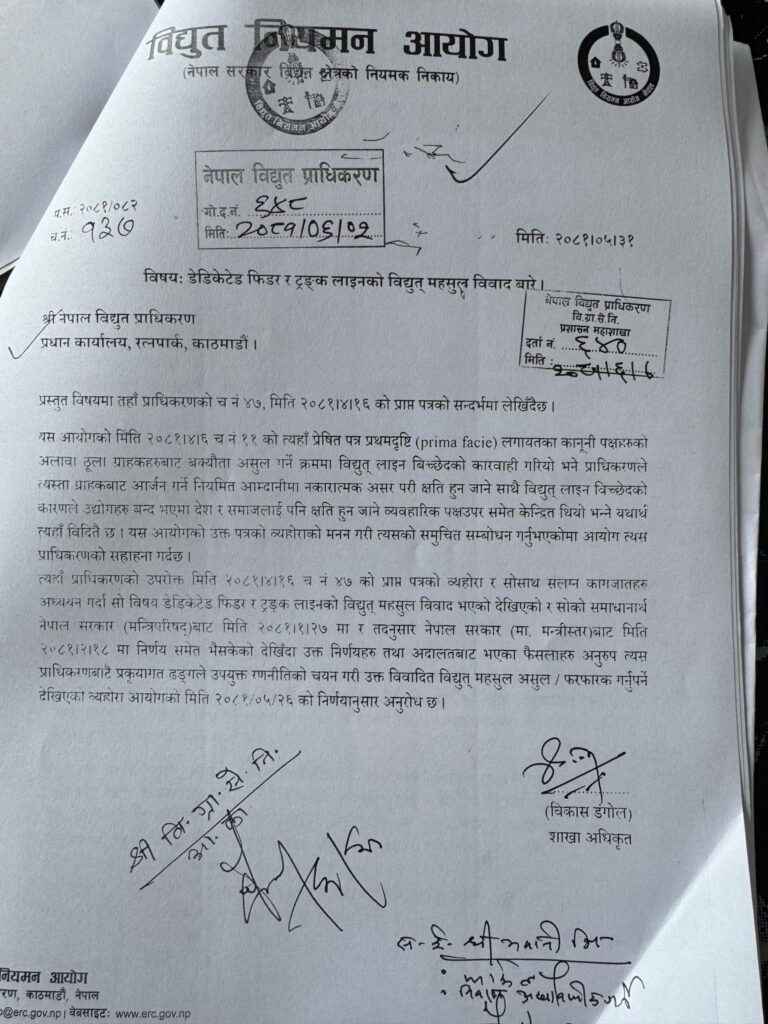 विद्युत नियमन आयोग
(नेपाल सरकार विद्युत क्षेत्रको नियमक निकाय)
विद्युत नियमन आयोग
नेपाल विद्युत प्राधिकरण
गो.द.नं. ६४८
मितिः २०८१/०६/०२
प.स. २०८१/०८२
च.नं.: १३७
मितिः २०८१/०५/३१
विषयः डेडिकेटेड फिडर र ट्रङ्क लाइनको विद्युत् महसुल विवाद बारे।
नेपाल विद्युत प्राधिकरण
वि.ग्रा.से.नि.
प्रशासन महाशाखा
दर्ता नं. ६४०
मिति :
श्री नेपाल विद्युत प्राधिकरण
प्रधान कार्यालय, रत्नपार्क, काठमाडौं ।
प्रस्तुत विषयमा तहाँ प्राधिकरणको च नं ४७, मिति २०८१।४।१६ को प्राप्त पत्रको सन्दर्भमा लेखिँदैछ ।
यस आयोगको मिति २०८१।४।६ च नं ११ को त्यहाँ प्रेषित पत्र प्रथमदृष्टि (prima facie) लगायतका कानूनी पक्षहरुको
अलावा ठूला ग्राहकहरुबाट बक्यौता असुल गर्ने क्रममा विद्युत् लाइन बिच्छेदको कारवाही गरियो भने प्राधिकरणले
त्यस्ता ग्राहकबाट आर्जन गर्ने नियमित आम्दानीमा नकारात्मक असर परी क्षति हुन जाने साथै विद्युत् लाइन विच्छेदको
कारणले उद्योगहरु बन्द भएमा देश र समाजलाई पनि क्षति हुन जाने व्यवहारिक पक्षउपर समेत केन्द्रित थियो भन्ने यथार्थ
त्यहाँ विदितै छ । यस आयोगको उक्त पत्रको व्यहोराको मनन गरी त्यसको समुचित सम्बोधन गर्नुभएकोमा आयोग त्यस
प्राधिकरणको सराहना गर्दछ ।
त्यहाँ प्राधिकरणको उपरोक्त मिति २०८१।४।१६ च नं ४७ को प्राप्त पत्रको व्यहोरा र सोसाथ संलग्न कागजातहरु
अध्ययन गर्दा सो विषय डेडिकेटेड फिडर र ट्रङ्क लाइनको विद्युत् महसुल विवाद भएको देखिएको र सोको समाधानार्थ
नेपाल सरकार (मन्त्रिपरिषद्)बाट मिति २०८१।१।२७ मा र तदनुसार नेपाल सरकार (मा. मन्त्रीस्तर)बाट मिति
२०८१।२।१८ मा निर्णय समेत भैसकेको देखिँदा उक्त निर्णयहरु तथा अदालतबाट भएका फैसलाहरु अनुरुप त्यस
प्राधिकरणबाटै प्रकृयागत ढङ्गले उपयुक्त रणनीतिको चयन गरी उक्त विवादित विद्युत् महसुल असुल / फरफारक गर्नुपर्ने
देखिएका व्यहोरा आयोगको मिति २०८१/०५/२६ को निर्णयानुसार अनुरोध छ ।
(विकास डंगोल)
शाखा अधिकृत
श्री वि. ग्रा. से. नि.
नियमन आयोग
काठमाडौं, नेपाल
@erc.gov.np | वेबसाइटः www.erc.gov.np